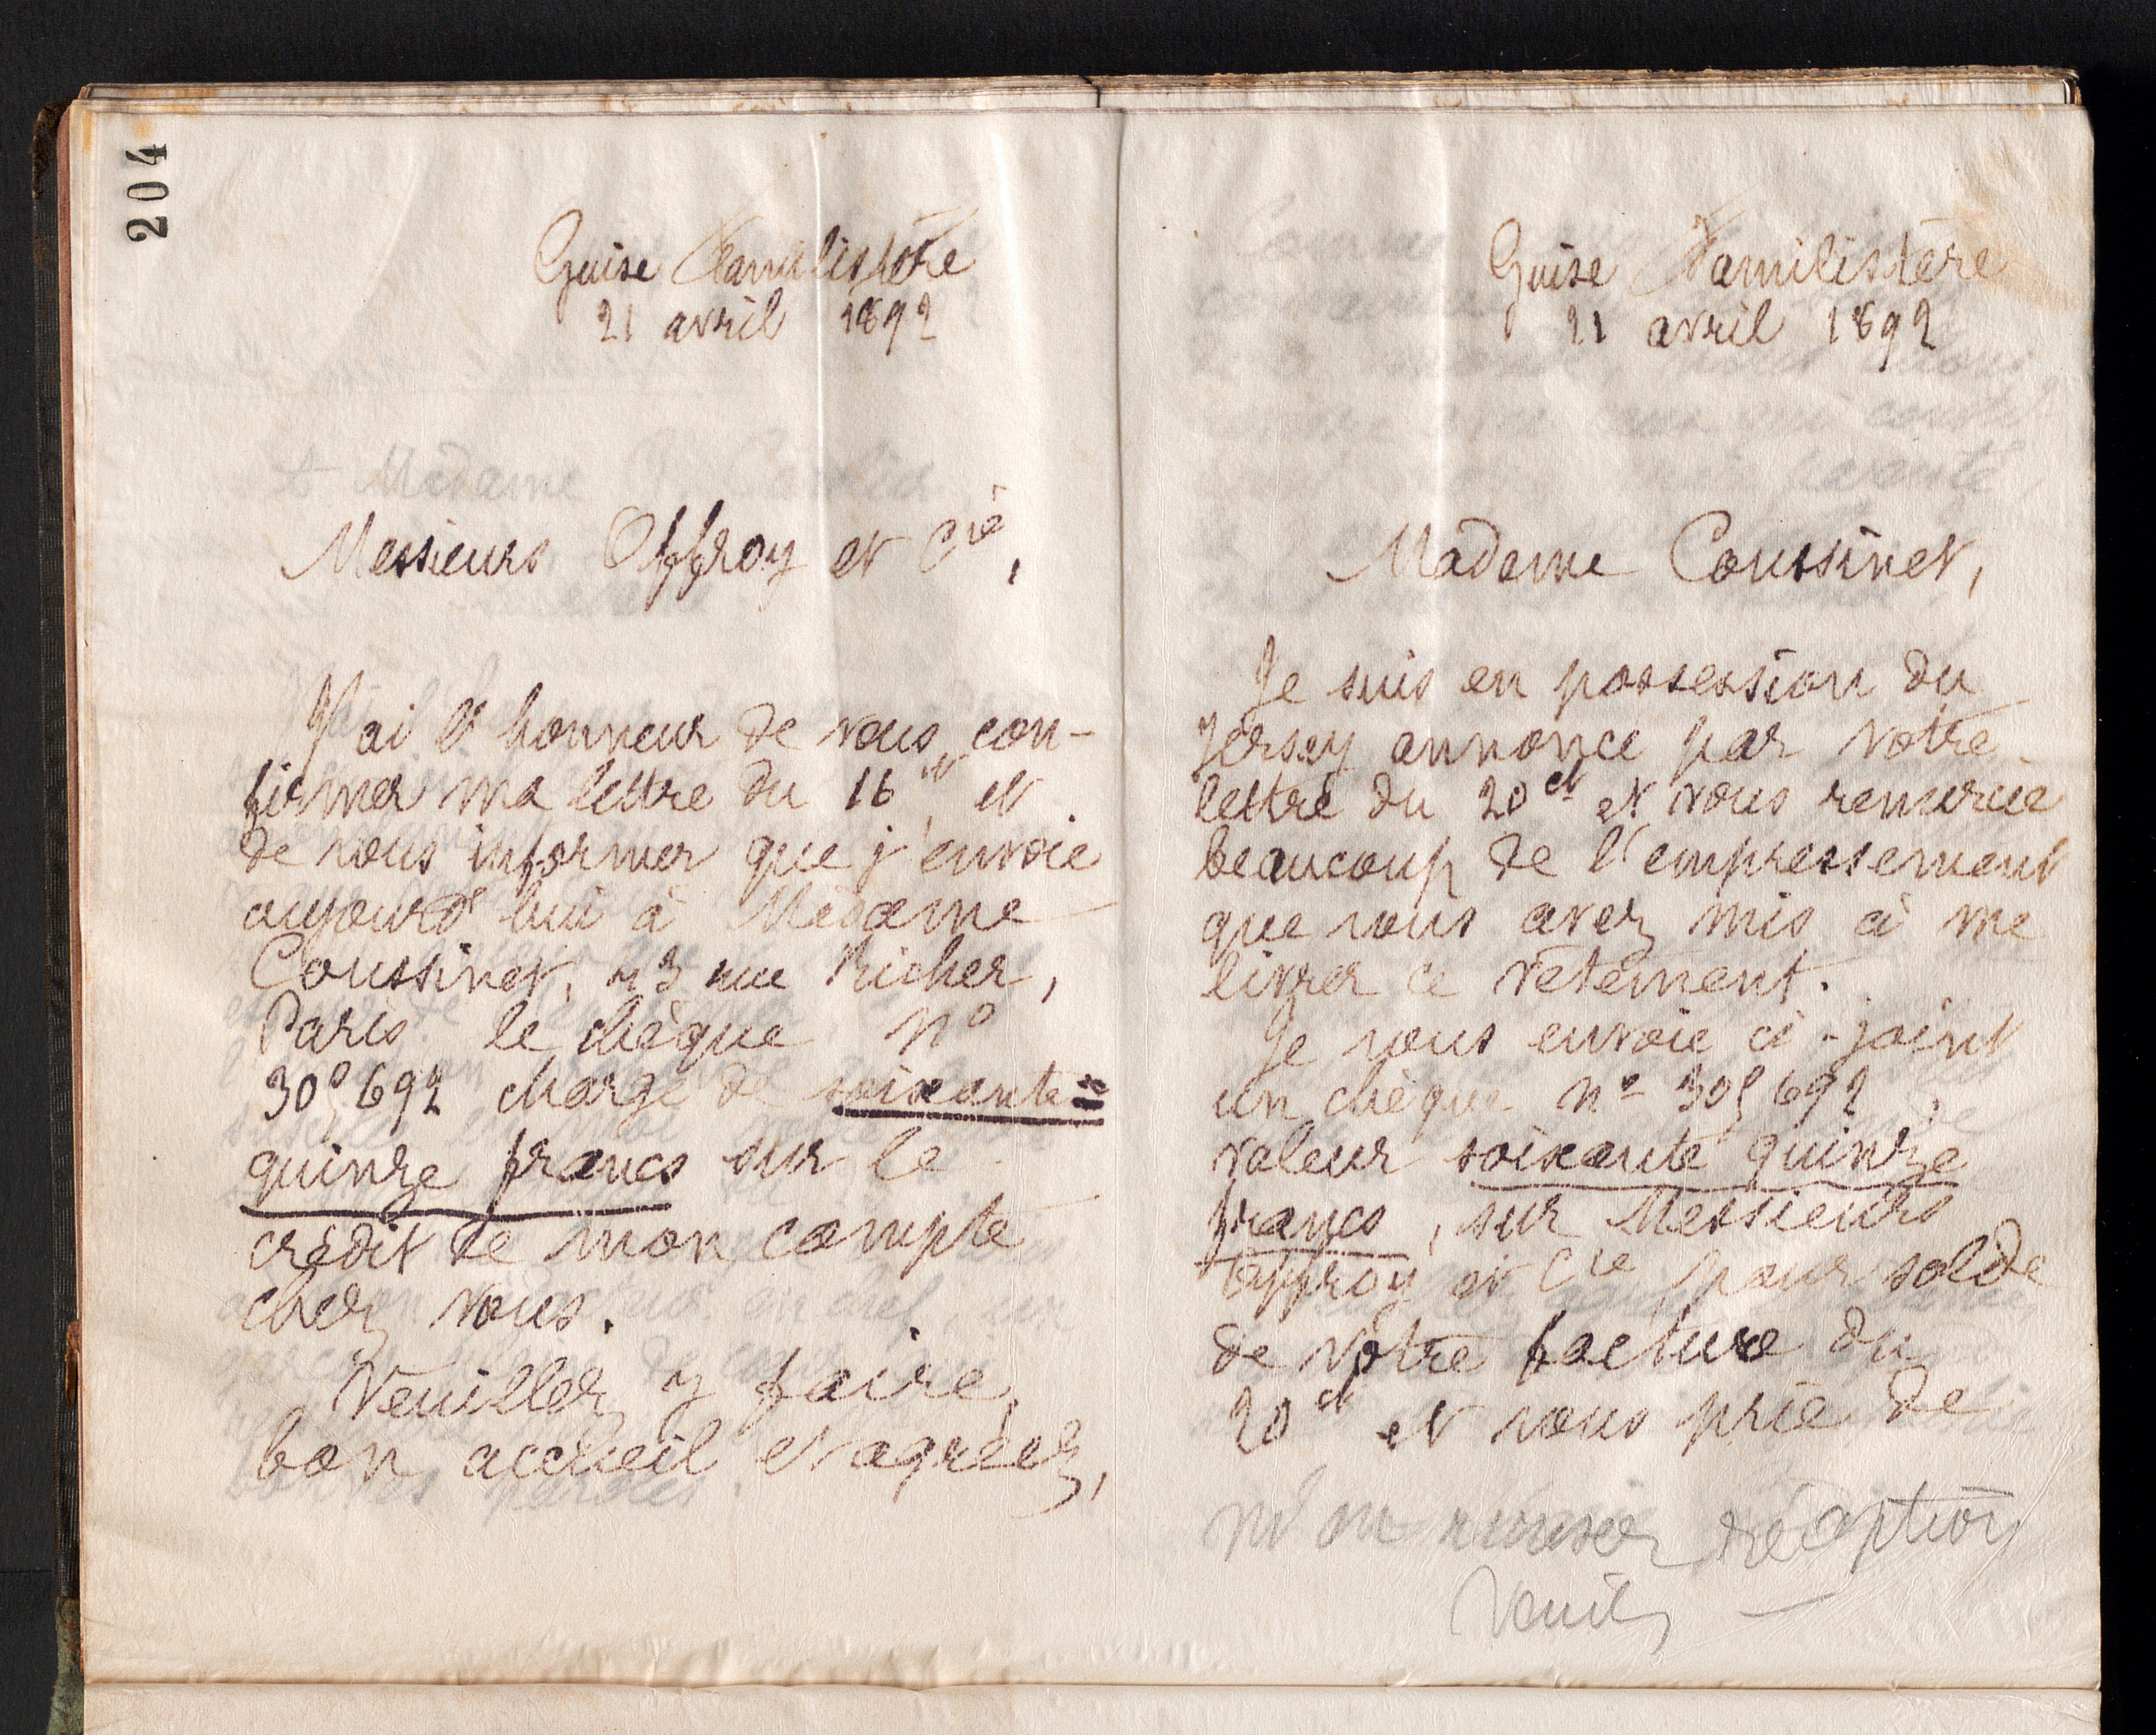 204
Guise Familistère
21 avril 1892
Messieurs Offroy et Cie,
J'ai l'honneur de vous con-
firmer ma lettre du 16 ct et
de vous informer que j'envoie
aujourd'hui à Madame
Coussinet, 43 rue Richer,
Paris le chèque no
305692 chargé de soixante=
quinze francs sur le
crédit de mon compte
chez vous.
Veuillez y faire
bon accueil et agréez,
Guise Familistère
21 avril 1892
Madame Coussinet,
Je suis en possession du
Jersey annoncé par votre
lettre du 20 ct et vous remercie
beaucoup de l'empressement
que vous avez mis à me
livrer ce vêtement.
Je vous envoie ci-joint
un chèque no 305692,
valeur soixante quinze
francs, sur Messieurs
Offroy et Cie pour solde
de votre facture du
20 ct et vous prie de
m'en accuser réception
Veuil